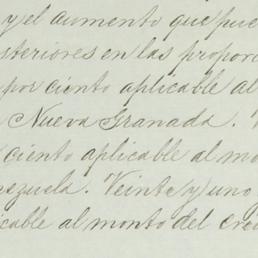 y el aumento que pue
steriores en las propor
por ciento aplicable al
Nueva Granada.
ciento aplicable al mo
ezuela. Veinte y uno
icable al monto del cré